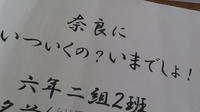 奈良に
いついくの?いまでしょ!
六年二組2班